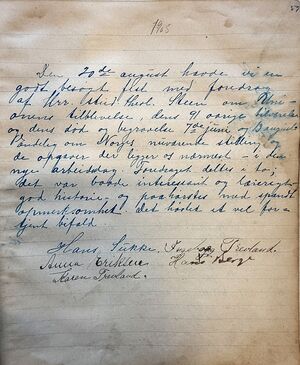 57
1905
Den 20de august havde vi en
godt besøgt fest med foredrag
af Hrr. Stud. Theol. Steen om Uni-
onens tilblivelse, dens 91 aarige tilværelse
og dens død og begravelse 7de juni og 13 august
om Norges nuværende stilling og
de opgaver der ligger os nærmest – i den
nye arbeidsdag. Foredraget deltes i to;
det var baade interessant og lærerigt
god historie og paahørtes med spændt
opmerksomhed. Det høstet et vel for-
tjent bifald.
Hans Ingeborg Treeland.
Anna Eriksen Hans Berge
Karen Treeland.